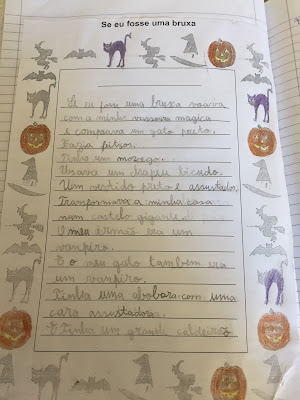 Se eu fosse uma bruxa
Se eu fosse uma bruxa voava
com a minha vassoura magica
e comprava um gato preto.
Fazia fitiços.
Tinha um morcego.
Usava um chapeu bicudo.
Um vestido preto e assustador.
Transformava a minha casa
num castelo gigante.
O meu irmão era um
vanpiro.
E o meu gato tambem era
um vanpiro.
Tinha uma abobora com uma
cara assustadora.
E Tinha um grande caldeirão